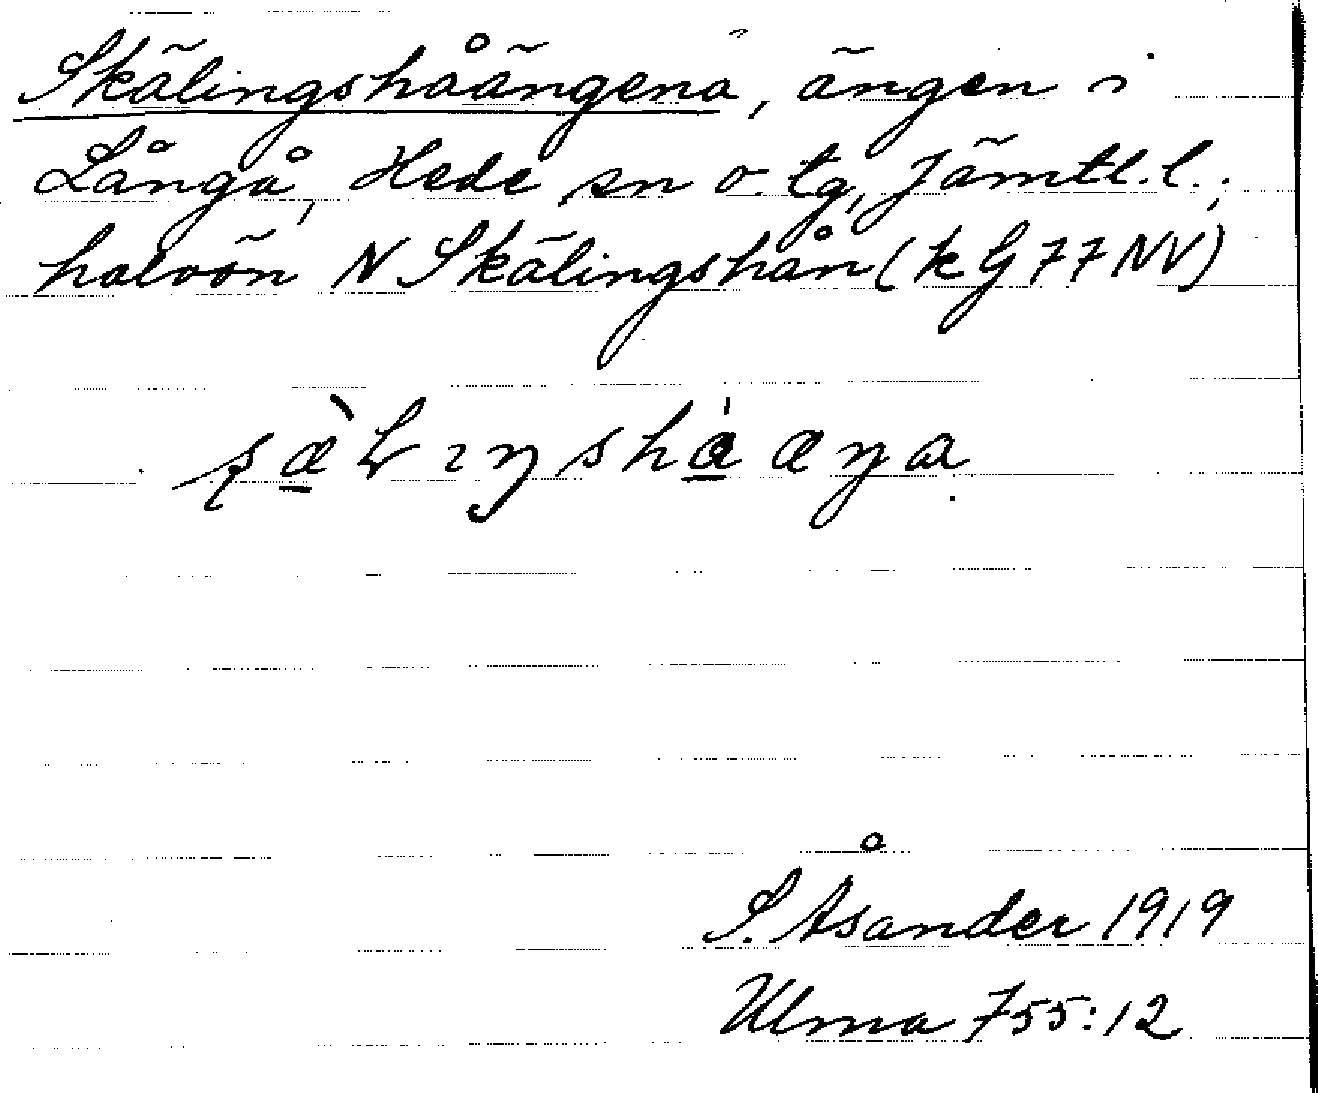 Skälingshåängena, ängen i
Långå, Hede sn o. tg, Jämtl.l.;
halvön N Skälingshån (k G 77 NV)
S. Åsander 1919
Ulma 755:12